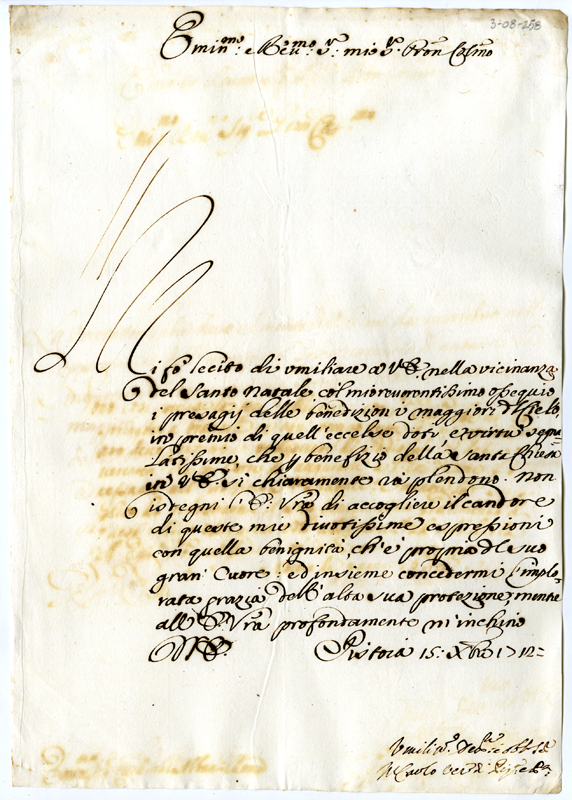 3-08-258
Emin.mo e Rev.mo S.r mio S.r Pron Col.mo
Mi fò lecito di vmiliare a V.S. nella vicinanza
del Santo Natale col mio reverentissimo ossequio
i presagij delle benedizioni maggiori del Cielo,
in premio di quell'eccelse doti, e virtù segna-
latissime, che p benefizio della Santa Chiesa
in V.S. sì chiaramente risplendono. Non
isdegni l'E. Vra di accogliere il candore
di queste mie divotissime espressioni
con quella benignità, ch'è propria del suo
gran Cuore: ed insieme concedermi l'implo-
rata grazia dell'alta sua protezione; mentre
all'E. Vra profondamente m'inchino
Pistoia 15: Xbre 1712=
Vmiliss.o Dev.mo